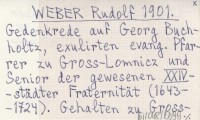 x
WEBER Rudolf 1901.
Gedenkrede auf Georg Buch-
holtz, exulirten evang. Pfar-
rer zu Gross-Lomnicz und
Senior der gewesenen XXIV-
-städter Fraternität (1643-
-1724). Gehalten zu Gross-